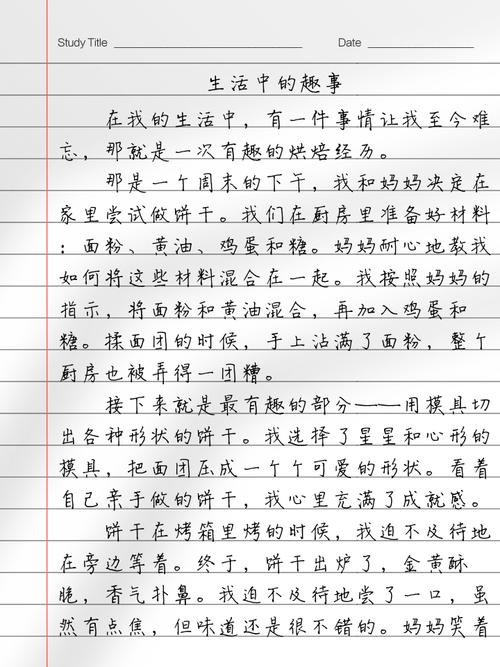 Study Title
Date
生活中的趣事
在我的生活中，有一件事情让我至今难
忘，那就是一次有趣的烘焙经历。
那是一个周末的下午，我和妈妈决定在
家里尝试做饼干。我们在厨房里准备好材料
：面粉、黄油、鸡蛋和糖。妈妈耐心地教我
如何将这些材料混合在一起。我按照妈妈的
指示，将面粉和黄油混合，再加入鸡蛋和
糖。揉面团的时候，手上沾满了面粉，整个
厨房也被弄得一团糟。
接下来就是最有趣的部分——用模具切
出各种形状的饼干。我选择了星星和心形的
模具，把面团压成一个个可爱的形状。看着
自己亲手做的饼干，我心里充满了成就感。
饼干在烤箱里烤的时候，我迫不及待地
在旁边等着。终于，饼干出炉了，金黄酥
脆，香气扑鼻。我迫不及待地尝了一口，虽
然有点焦，但味道还是很不错的。妈妈笑着